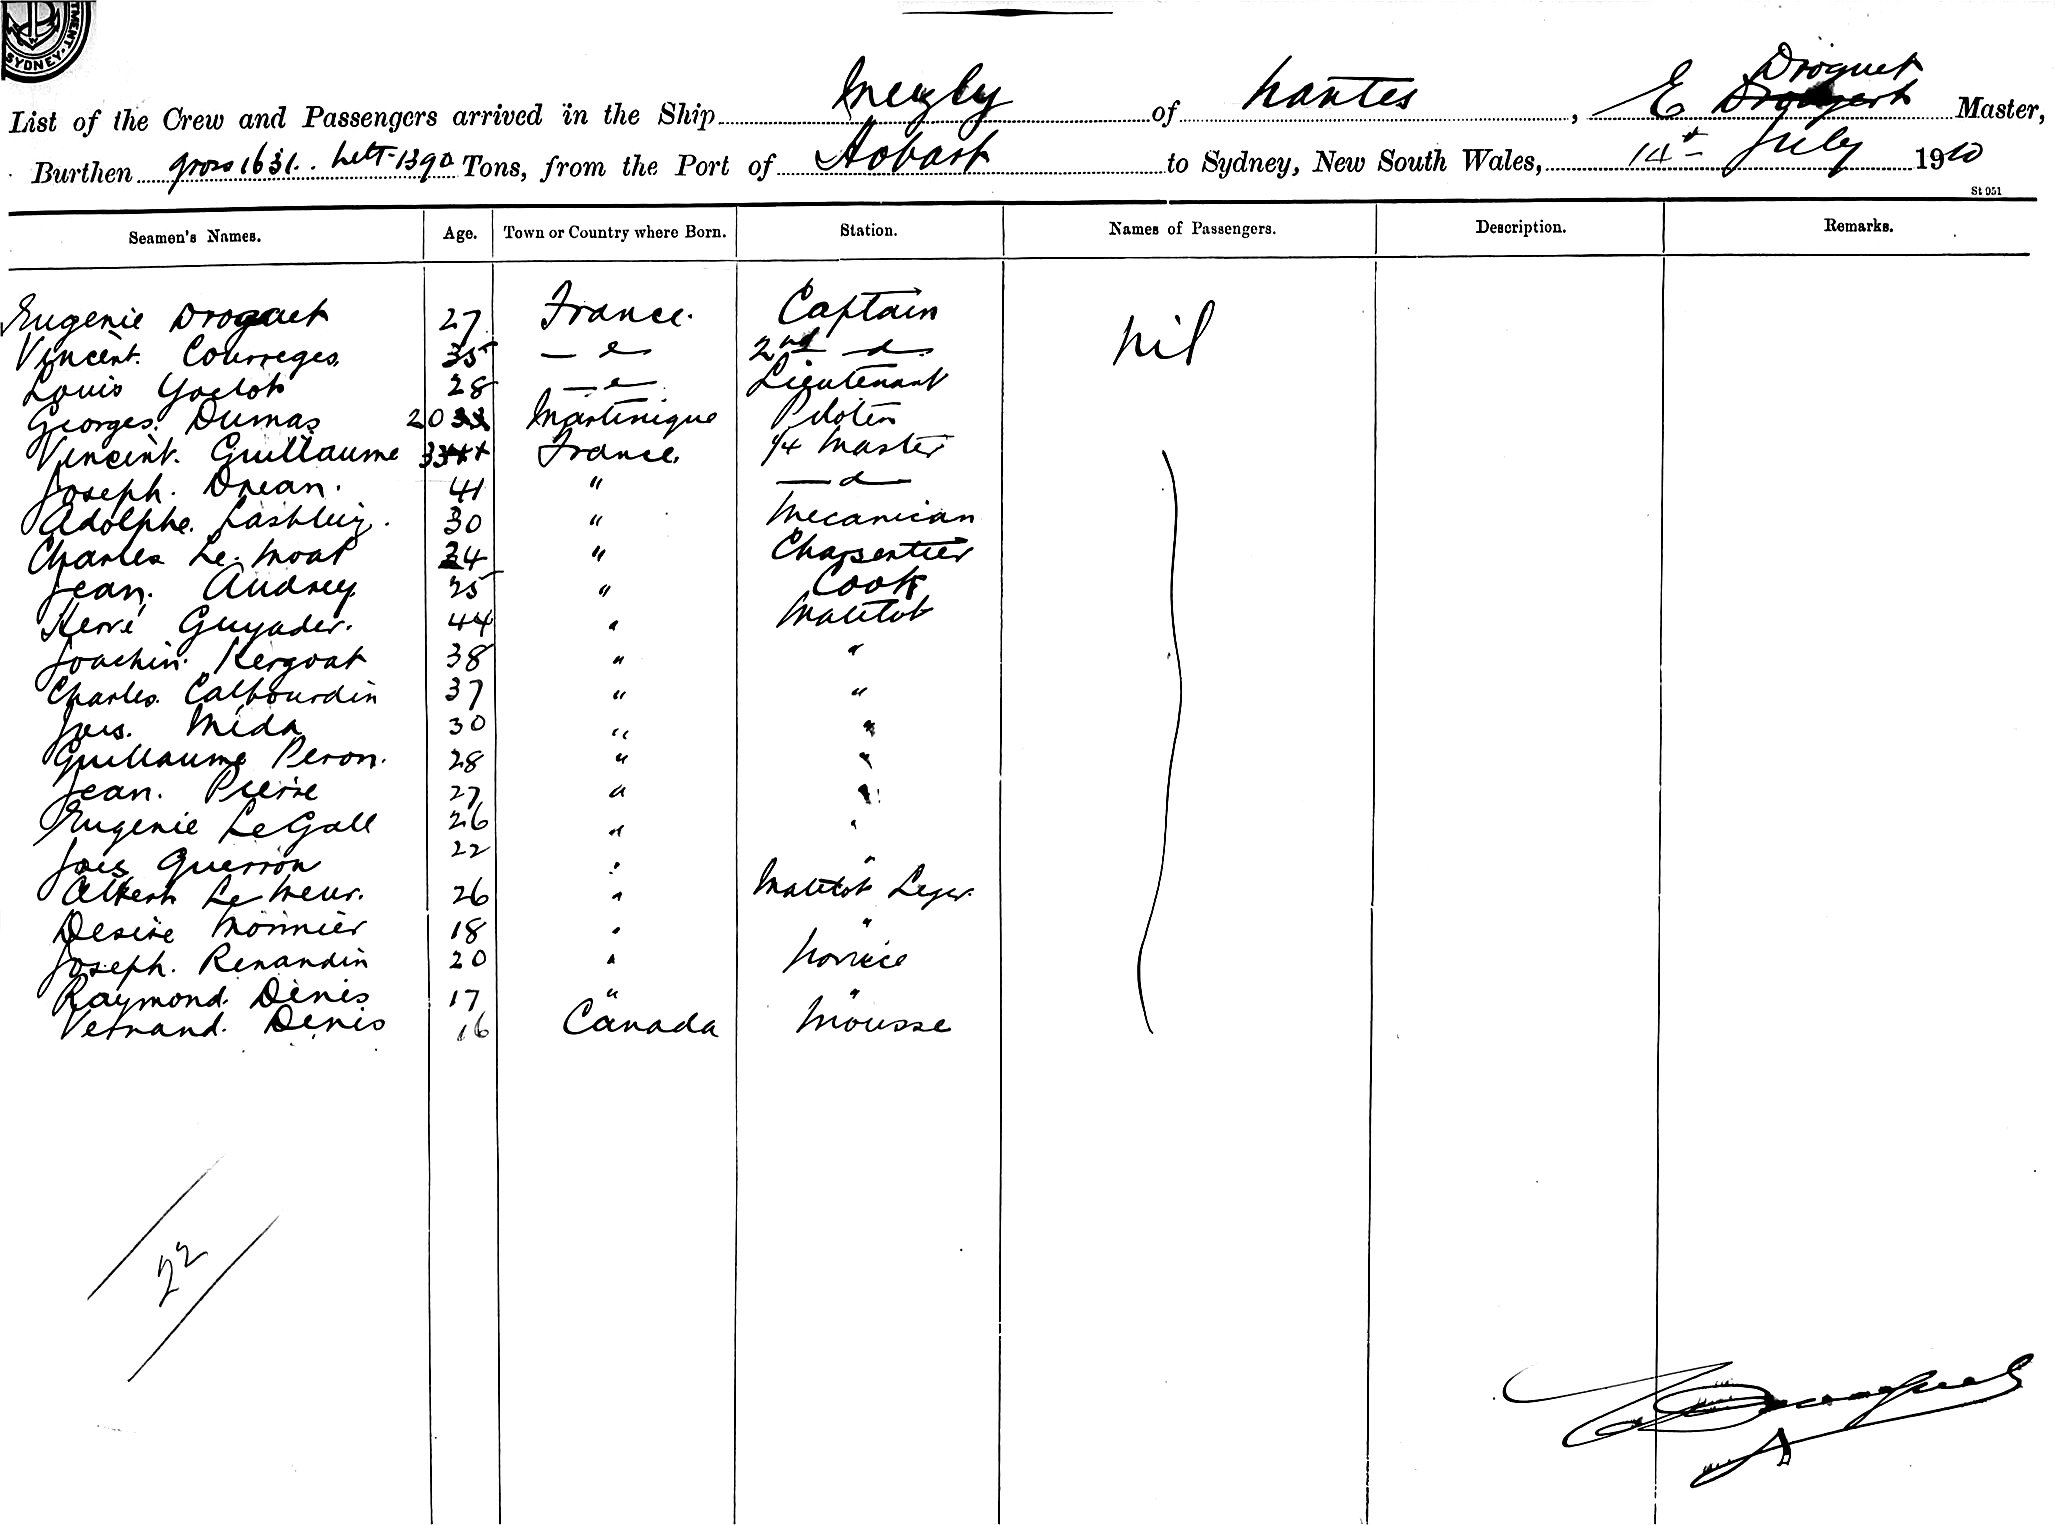 TMENT. SYDNEY.
List of the Crew and Passengers arrived in the Ship of Nantes, E Droguet Master,
Burthen gross 1631. Nett 1390 Tons, from the Port of Hobart to Sydney, New South Wales, 14th July 1910
St 951
Seamen's Names. Age. Town or Country where Born. Station. Names of Passengers. Description. Remarks.
Eugenie Droguet 27 France. Captain
Vincent. Courreges 35 — " — 2nd — d — Nil
Louis 28 — " — Lieutenant
Georges. Dumas 20 Martinique Pilotin
Vincent. Guillaume 33 France. 1/4 Master
Joseph. Drean. 41 " — d —
Adolphe. 30 " Mecanican
Charles Le. Moal 34 " Charpentier
Jean. Audrey 25 " Cook
Hervé Guyader. 44 " Matelot
Joachin. Kergoat 38 " "
Charles. Calbourdin 37 " "
Mida 30 " "
Guillaume Peron. 28 " "
Jean. Pierre 27 " "
Eugenie Le Gall 26 " "
Guerron 22 " "
Albert Le Meur. 26 " Matelot Leger.
Desire Monnier 18 " "
Joseph. Renandin 20 " Novice
Raymond. Denis 17 " "
Vernand. Denis 16 Canada Mousse
22